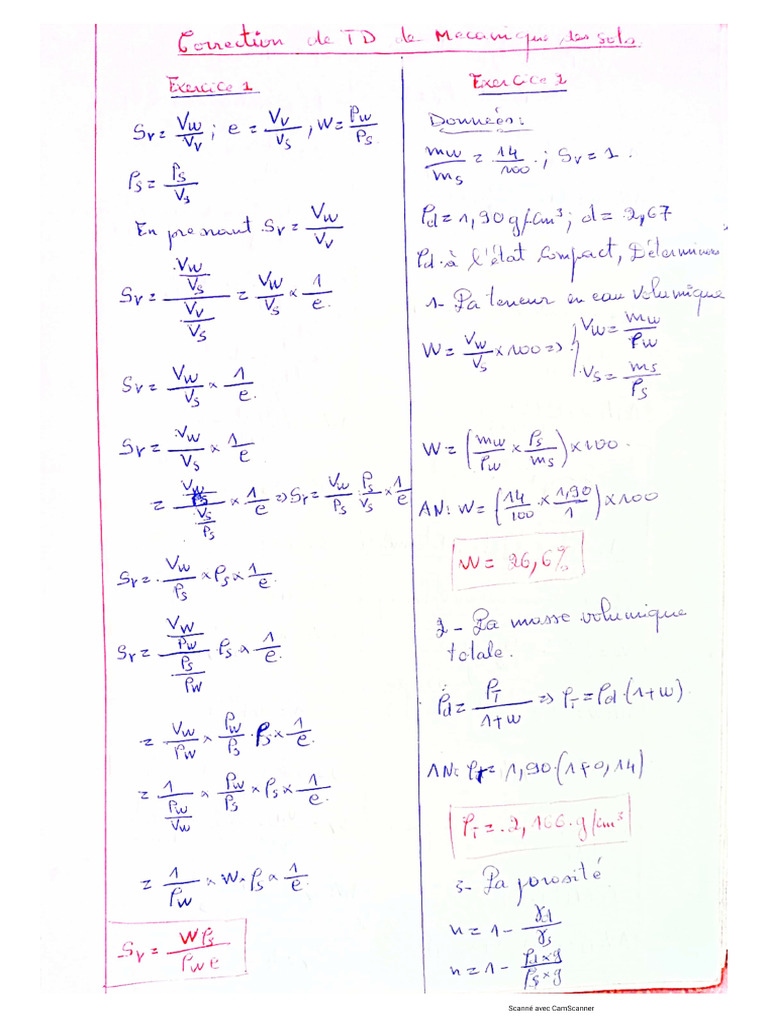 Correction de TD de Mecanique des sols
Exercice 1
Sr = Vw/Vv ; e = Vv/Vs , W = Pw/Ps
ρs = Ps/Vs
En prenant Sr = Vw/Vv
Sr = (Vw/Vs)/(Vv/Vs) = Vw/Vs × 1/e
Sr = Vw/Vs × 1/e
Sr = Vw/Vs × 1/e
= (Vw/Ps)/(Vs/Ps) × 1/e => Sr = Vw/Ps · Ps/Vs × 1/e
Sr = Vw/Ps × ρs × 1/e
Sr = (Vw/Pw)/(Ps/Pw) · ρs × 1/e
= Vw/Pw × Pw/Ps · ρs × 1/e
= 1/(Pw/Vw) × Pw/Ps × ρs × 1/e
= 1/ρw × W × ρs × 1/e
Sr = Wρs/ρw e
Exercice 2
Données:
mw/ms = 14/100 ; Sr = 1.
ρd = 1,90 g/cm³ ; d = 2,67
ρd à l'état compact, Déterminons
1- La teneur en eau volumique
W = Vw/Vs × 100 => { Vw = mw/ρw
Vs = ms/ρs
W = (mw/ρw × ρs/ms) × 100
AN: W = (14/100 × 1,90/1) × 100
W = 26,6%
2- La masse volumique
totale.
ρd = ρT/1+w => ρT = ρd · (1+w)
AN: ρT = 1,90 · (1+0,14)
ρT = 2,166 g/cm³
3- La porosité
n = 1 - γd/γs
n = 1 - ρd×g/ρs×g
Scanné avec CamScanner